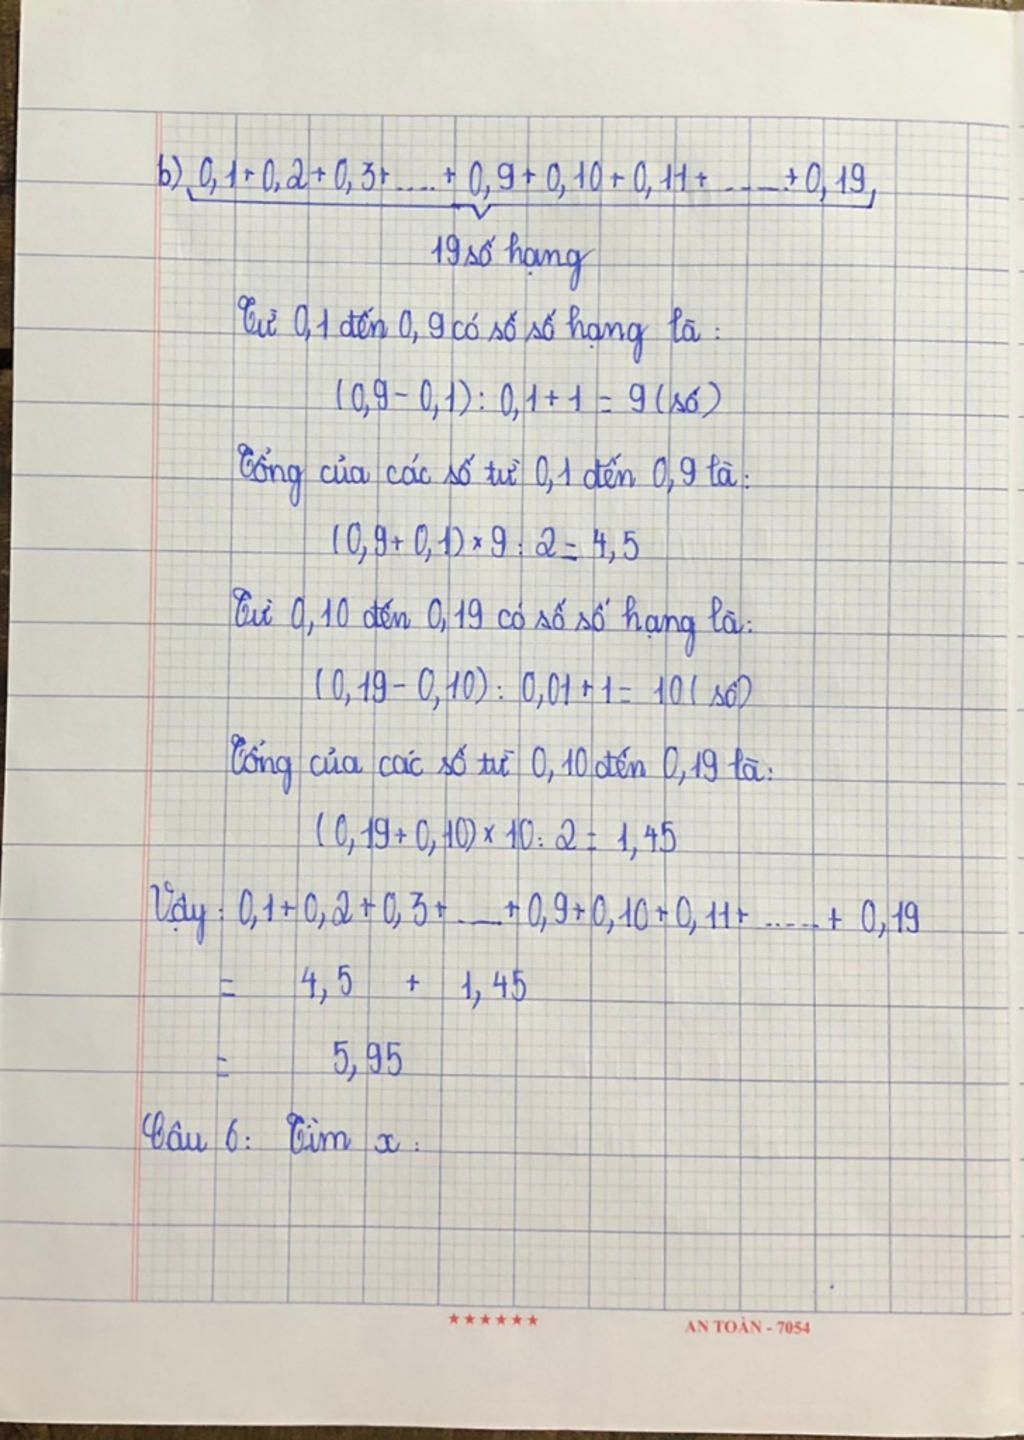 b) 0,1+0,2+0,3+.....+0,9+0,10+0,11+.....+0,19
19 số hạng
Từ 0,1 đến 0,9 có số số hạng là:
(0,9-0,1):0,1+1=9(số)
Tổng của các số từ 0,1 đến 0,9 là:
(0,9+0,1)×9:2=4,5
Từ 0,10 đến 0,19 có số số hạng là:
(0,19-0,10):0,01+1=10(số)
Tổng của các số từ 0,10 đến 0,19 là:
(0,19+0,10)×10:2=1,45
Vậy: 0,1+0,2+0,3+.....+0,9+0,10+0,11+.....+0,19
= 4,5 + 1,45
= 5,95
Câu 6: Tìm x:
★★★★★★ AN TOÀN - 7054